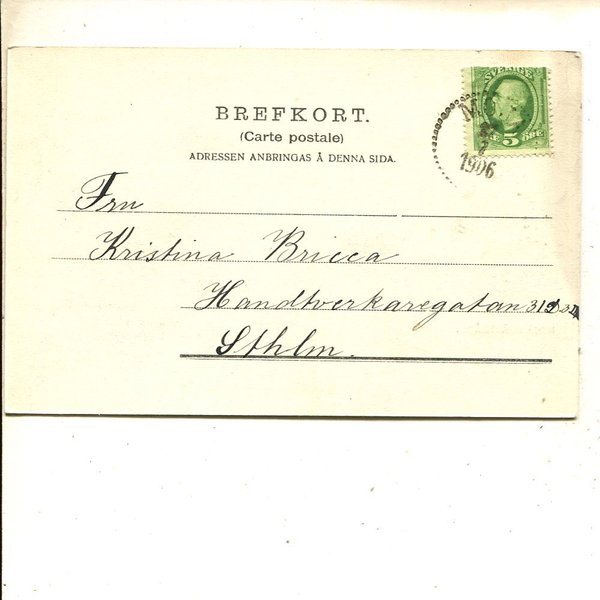 SVERIGE
5 ÖRE
1906
BREFKORT.
(Carte postale)
ADRESSEN ANBRINGAS Å DENNA SIDA.
Fru
Kristina Bricca
Handtverkaregatan
Sthlm.